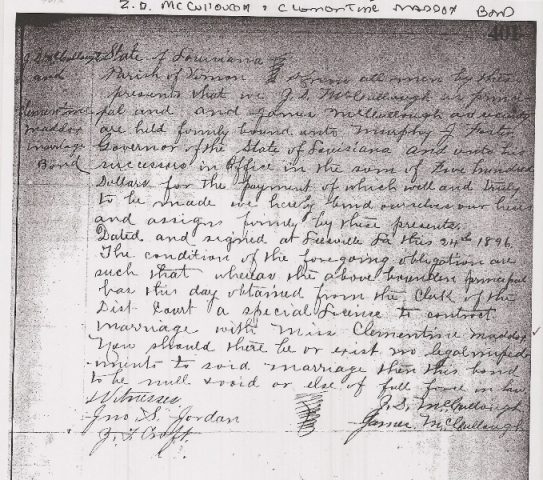 Z.D. McCullough & Clementine Maddox Bond
401
State of Louisiana
and Parish of Vernon Know all men by these
presents that we J.D. McCullough as princi-
pal and and James McCullough as security
Clementine
Maddox
Marriage
Bond
are held firmly bound unto Murphy J Foster
Governor of the State of Louisiana and unto his
successors in Office in the sum of Five hundred
Dollars for the payment of which well and truly
to be made we hereby bind ourselves our heirs
and assigns firmly by these presents.
Dated and signed at Leesville La this 24th 1896
The condition of the foregoing obligation are
such that whereas the above bounden principal
has this day obtained from the Clerk of the
Dist Court a special License to contract
Marriage with Miss Clementine Maddox
Now should there be or exist no legal imped-
iments to said marriage then this bond
to be null & void or else of full force in law
Witnesses
J.D. McCullough
Jno S. Jordan
James McCullough
Z. T. Croft